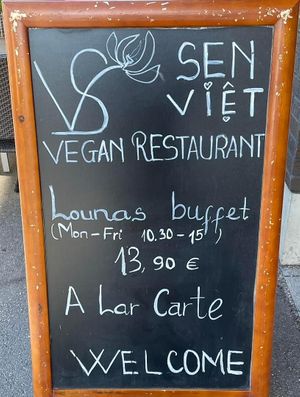 VS
SEN
VIỆT
VEGAN RESTAURANT
Lounas buffet
(Mon-Fri 10.30-15)
13,90 €
A Lar Carte
WELCOME